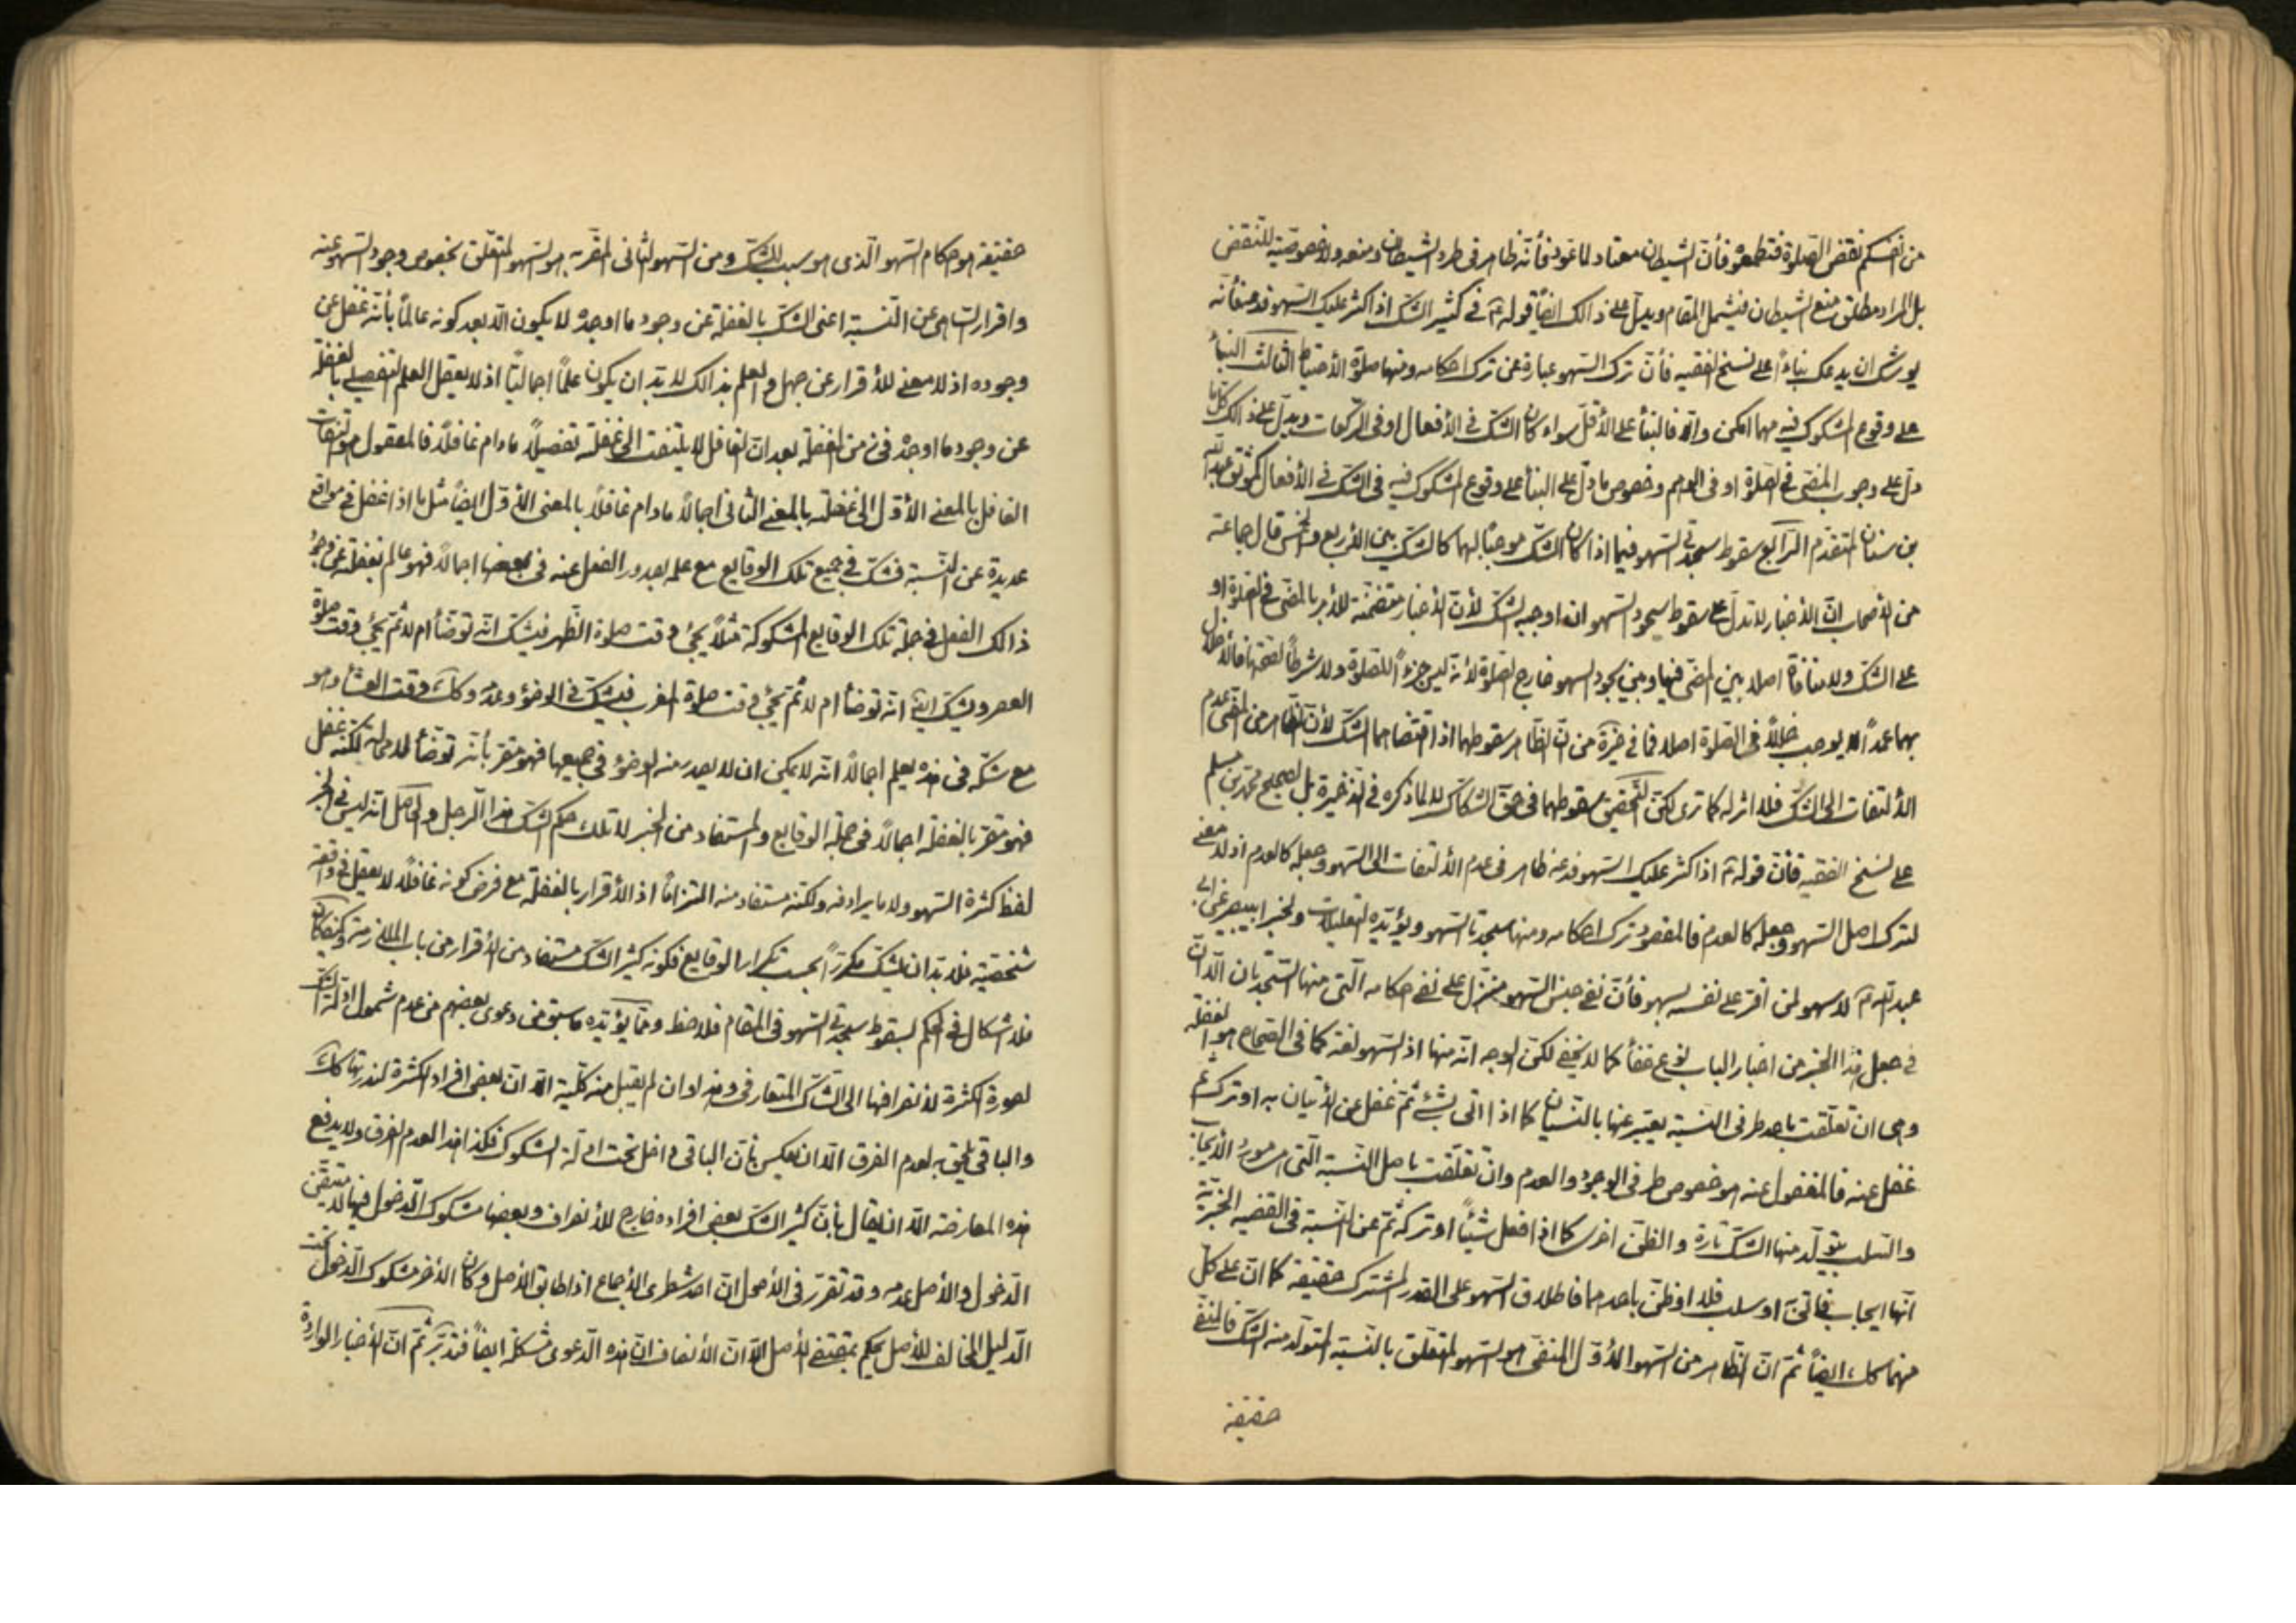 من انفسكم نقض الصلوة فتطمعوه فأن الشيطان معتاد لما عود فأنه ظاهر فى طرد الشيطان ومنعه ولا خصوصية للنقض
بل المراد مطلق منع الشيطان فيشمل المقام ويدل على ذالك ايضاً قوله ع فى كثير الشك اذا كثر عليك السهو فدعه فأنه
يوشك ان يدعك بناءً على نسخ الفقيه فأن ترك السهو عبارة عن ترك احكامه ومنها صلوة الأحتياط الثالث البنأ
على وقوع المشكوك فيه مهما امكن والّا فالبنأ على الأقل سواء كان الشك فى الأفعال او فى الركعات ويدل على ذالك كلما
دل على وجوب المضى فى الصلوة او فى الوهم وخصوص ما دل على البنأ على وقوع المشكوك فيه فى الشك فى الأفعال كموثق عبد الله
بن سنان المتقدم الرابع سقوط سجدتى السهو فيما اذا كان الشك موجباً لهما كالشك بين الأربع والخمس قال جماعة
من الأصحاب ان الأخبار لا تدل على سقوط سجود السهو ان اوجبه الشك لأن الأخبار متضمنة للأمر بالمضى فى الصلوة او
على الشك ولا منافاة اصلا بين المضى فيها وبين سجود السهو خارج الصلوة لأنه ليس جزءاً للصلوة ولا شرطاً لصحتها فالأخلال
بهما عمداً لا يوجب خللاً فى الصلوة اصلا فما فى من ان الظاهر سقوطهما اذا اقتضاهما الشك لأن الظاهر من المضى عدم
الألتفات الى الشك فلا اثر له كما ترى لكن التحقيق سقوطهما فى حق الشكاك لا لما ذكره فى الذخيرة بل لصحيح محمد بن مسلم
على نسخ الفقيه فأن قوله ع اذا كثر عليك السهو فدعه ظاهر فى عدم الألتفات الى السهو وجعله كالعدم اذ لا معنى
لترك اصل السهو وجعله كالعدم فالمقصود ترك احكامه ومنها سجدتا السهو ويؤيده التعليلات والخبر ابى بصير عن ابى
عبد الله ع لا سهو لمن اقر على نفسه بسهو فأن نفى جنس السهو منزل على نفى احكامه التى منها السجدتان الّا ان
فى جعل هذا الخبر من اخبار الباب نوع خفأ كما لا يخفى لكن الوجه انه منها اذ السهو لغة كما فى الصحاح هو الغفلة
وهى ان تعلقت باحد طرفى النسبة يعتبر عنها بالنسيان كما اذا اتى بشئ ثم غفل عن الأتيان به او ترك ثم
غفل عنه فالمغفول عنه هو خصوص طرفى الوجود والعدم وان تعلقت باصل النسبة التى هى مورد الأيجاب
والسلب يتولد منها الشك تارة والظن اخرى كما اذا فعل شيئاً او تركه ثم عن النسبة فى القضيه الخبريّة
انها ايجاب او سلب فلا او ظن باحدهما فاطلاق السهو على القدر المشترك حقيقة كما ان على كل
منهما كك ايضاً ثم ان الظاهر من السهو الأول المنفى هو السهو المتعلق بالنسبة المتولد منه الشك فالمنفى
حقيقة
حقيقة هو احكام السهو الّذى هو سبب للشك ومن السهو الثانى المقرّ به هو السهو المتعلق بخصوص وجود السهو عنه
واقرار الساهى عن النسبة اعنى الشك بالغفلة عن وجود ما اوجده لا يكون الّا بعد كونه عالماً بأنه غفل عن
وجوده اذ لا معنى للأقرار عن جهل والعلم بذالك لا بد ان يكون علماً اجمالياً اذ لا يعقل العلم التفصيلى بالغفلة
عن وجود ما اوجده فى زمن الغفلة بعد ان الغافل لا يلتفت الى غفلته تفصيلاً ما دام غافلاً فالمعقول هو التفات
الغافل بالمعنى الأول الى غفلته بالمعنى الثانى اجمالاً ما دام غافلاً بالمعنى الأول ايضاً مثل ما اذا غفل فى مواقع
عديدة عن النسبة فشك فى جميع تلك الوقايع مع علمه بصدور الفعل عنه فى بعضها اجمالا فهو عالم بغفلة عن وجود
ذالك الفعل فى جملة تلك الوقايع المشكوكة مثلاً يجئ وقت صلوة الظهر فيشك انه توضأ ام لا ثم يجئ وقت صلوة
العصر ويشك ايضا انه توضأ ام لا ثم يجئ وقت صلوة المغرب فيشك فى الوضوء وعدمه وكك وقت العشاء وهو
مع شكه فى هذه يعلم اجمالاً انه لا يمكن ان لا يصدر منه الوضوء فى جميعها فهو مقر بأنه توضأ لا محالة لكنه غفل
فهو مقر بالغفلة اجمالاً فى جملة الوقايع والمستفاد من الخبر حكم الشك هذا الرجل والحاصل انه ليس فى الخبر
لفظ كثرة السهو ولا ما يرادفه ولكنه مستفاد منه التزاماً اذ الأقرار بالغفلة مع فرض كونه غافلاً لا يعقل فى واقعة
شخصية فلا بد ان يشك مكرراً بحسب تكرار الوقايع فكونه كثير الشك مستفاد من الأقرار من باب الملازمة وكيف كان
فلا اشكال فى الحكم بسقوط سجدتى السهو فى المقام فلاحظ ومما يؤيده ما سبق من دعوى بعضهم من عدم شمول ادلة الشك
لصورة الكثرة لأنصرافها الى الشك المتعارف وهذا وان لم يقبل منه كلية الّا ان بعض افراد الكثرة لندرتها كك
والباقى يلحق به لعدم الفرق الّا ان يعكس بأن الباقى داخل تحت ادلة الشكوك فكذا هذا لعدم الفرق ولا يدفع
هذه المعارضة الّا ان يقال بأن كثير الشك بعض افراده خارج للأنصراف وبعضها مشكوك الدخول فيها لا متيقن
الدخول والأصل عدمه وقد تقرر فى الأصول ان احد شطرى الأجماع اذا طابق الأصل وكان الأخر مشكوك الدخول تحت
الدليل المخالف للأصل يحكم بمقتضى الأصل الّا ان الأنصاف ان هذه الدعوى مشكلة ايضاً فتدبّر ثم ان الأخبار الواردة